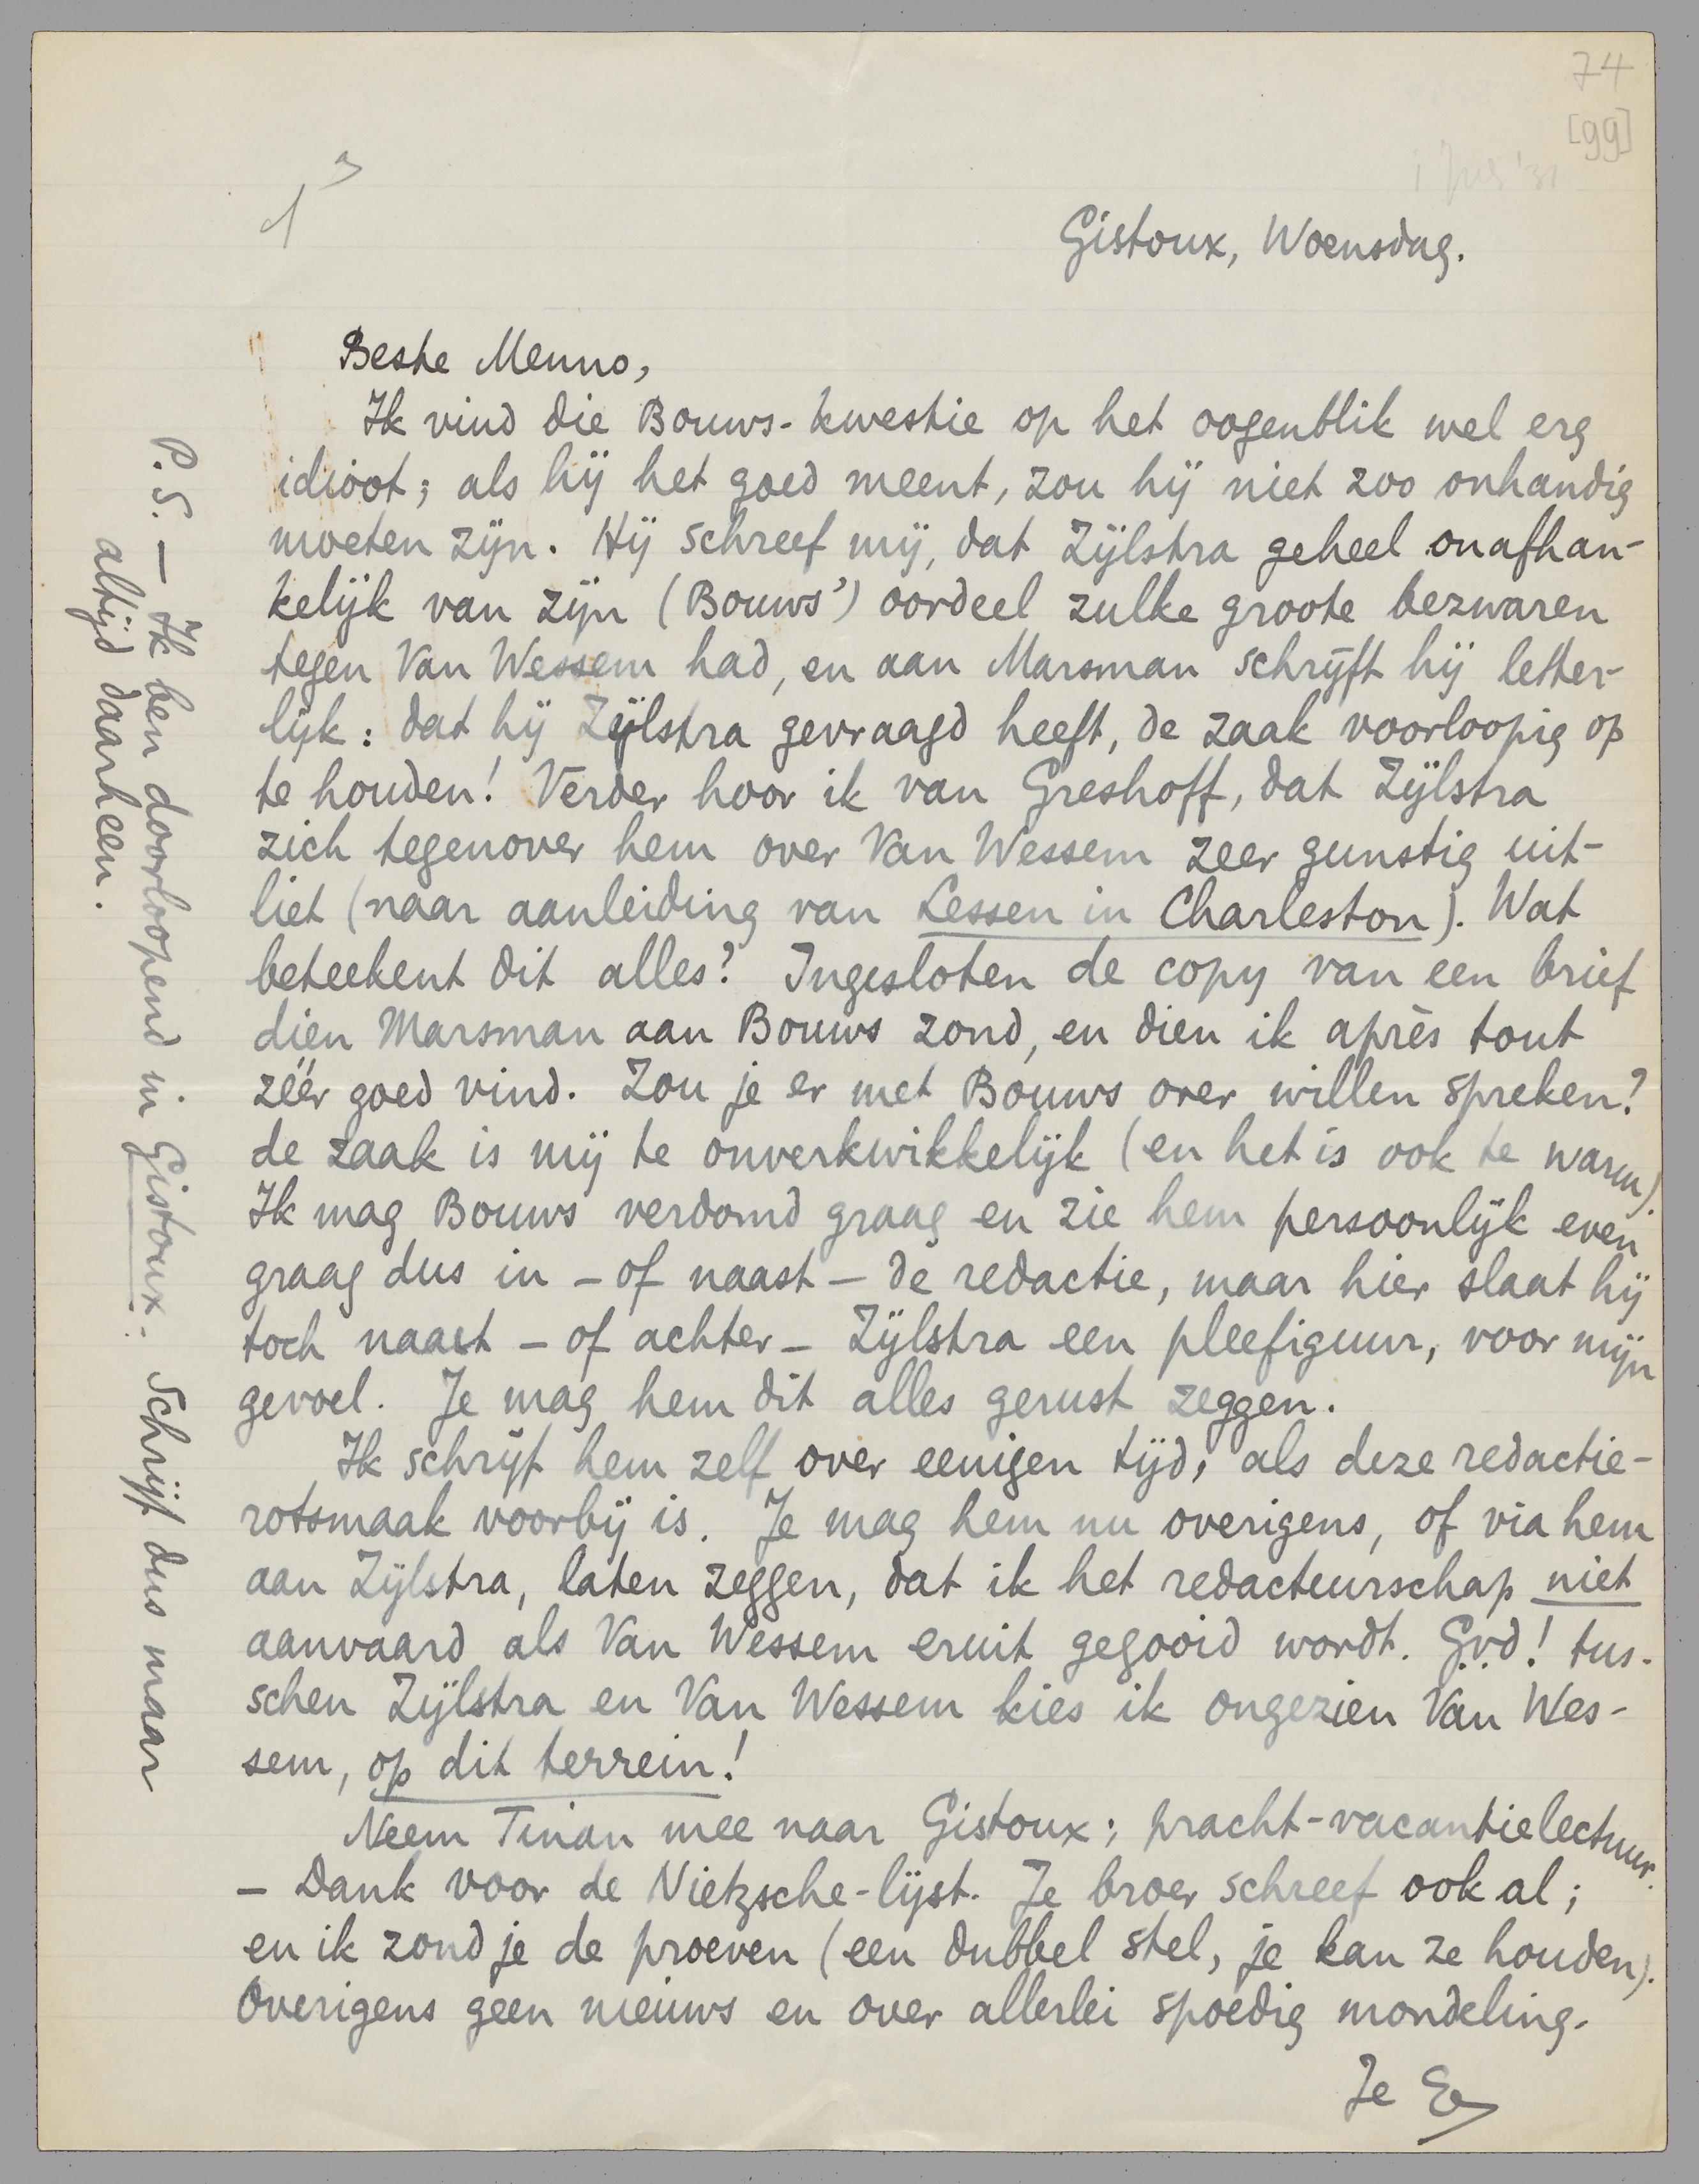 74
[99]
Gistoux, Woensdag.
Beste Menno,
Ik vind die Bouws-kwestie op het oogenblik wel erg
idioot; als hij het goed meent, zou hij niet zoo onhandig
moeten zijn. Hij schreef mij, dat Zijlstra geheel onafhan-
kelijk van zijn (Bouws') oordeel zulke groote bezwaren
tegen Van Wessem had, en aan Marsman schrijft hij letter-
lijk: dat hij Zijlstra gevraagd heeft, de zaak voorloopig op
te houden! Verder hoor ik van Greshoff, dat Zijlstra
zich tegenover hem over Van Wessem zeer gunstig uit-
liet (naar aanleiding van Lessen in Charleston). Wat
beteekent dit alles? Ingesloten de copy van een brief
dien Marsman aan Bouws zond, en dien ik après tout
zéér goed vind. Zou je er met Bouws over willen spreken?
de zaak is mij te onverkwikkelijk (en het is ook te warm).
Ik mag Bouws verdomd graag en zie hem persoonlijk even
graag dus in - of naast - de redactie, maar hier slaat hij
toch naast - of achter - Zijlstra een pleefiguur, voor mijn
gevoel. Je mag hem dit alles gerust zeggen.
Ik schrijf hem zelf over eenigen tijd, als deze redactie-
rotsmaak voorbij is. Je mag hem nu overigens, of via hem
aan Zijlstra, laten zeggen, dat ik het redacteurschap niet
aanvaard als Van Wessem eruit gegooid wordt. G.v.d! tus-
schen Zijlstra en Van Wessem kies ik ongezien Van Wes-
sem, op dit terrein!
Neem Tinan mee naar Gistoux; pracht-vacantielectuur.
- Dank voor de Nietzsche-lijst. Je broer schreef ook al;
en ik zond je de proeven (een dubbel stel, je kan ze houden).
Overigens geen nieuws en over allerlei spoedig mondeling.
Je E
P.S. - Ik ben doorloopend in Gistoux. Schrijf dus maar
altijd daarheen.